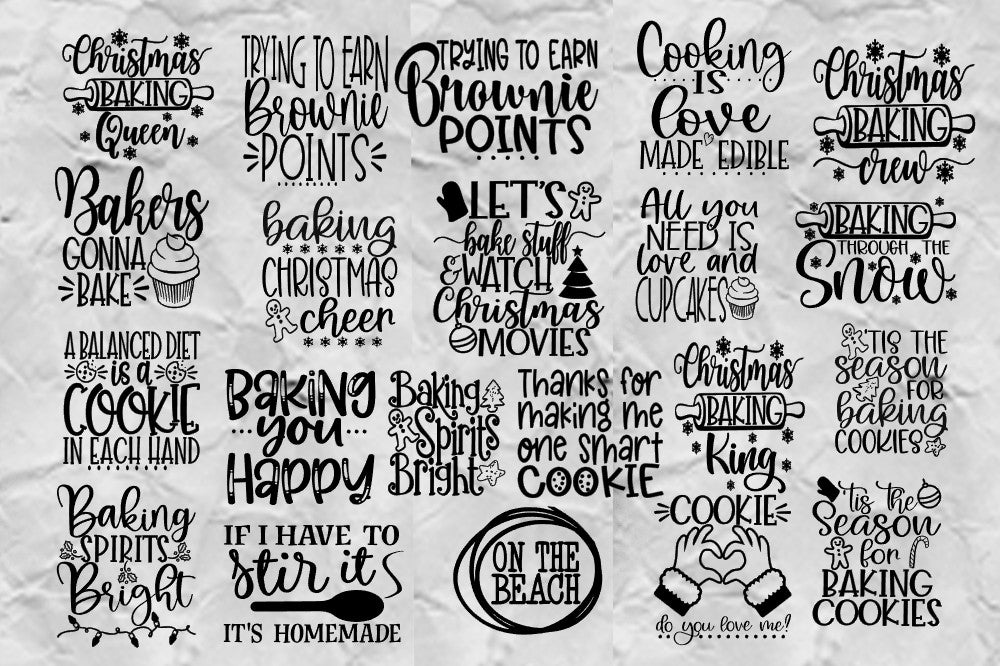 Christmas
BAKING
Queen
Bakers
GONNA
BAKE
A BALANCED DIET
is a
COOKIE
IN EACH HAND
Baking
SPIRITS
Bright
TRYING TO EARN
Brownie
POINTS
baking
CHRISTMAS
cheer
BAKING
you
HAPPY
IF I HAVE TO
Stir it
IT'S HOMEMADE
TRYING TO EARN
Brownie
POINTS
LET'S
bake stuff
& WATCH
Christmas
MOVIES
Baking
Spirits
Bright
Thanks for
making me
one smart
COOKIE
ON THE
BEACH
Cooking
IS
love
MADE EDIBLE
All you
NEED IS
love and
CUPCAKES
Christmas
BAKING
King
COOKIE
do you love me?
Christmas
BAKING
crew
BAKING
THROUGH THE
Snow
'TIS THE
season
FOR
baking
COOKIES
'tis the
Season
for
BAKING
COOKIES